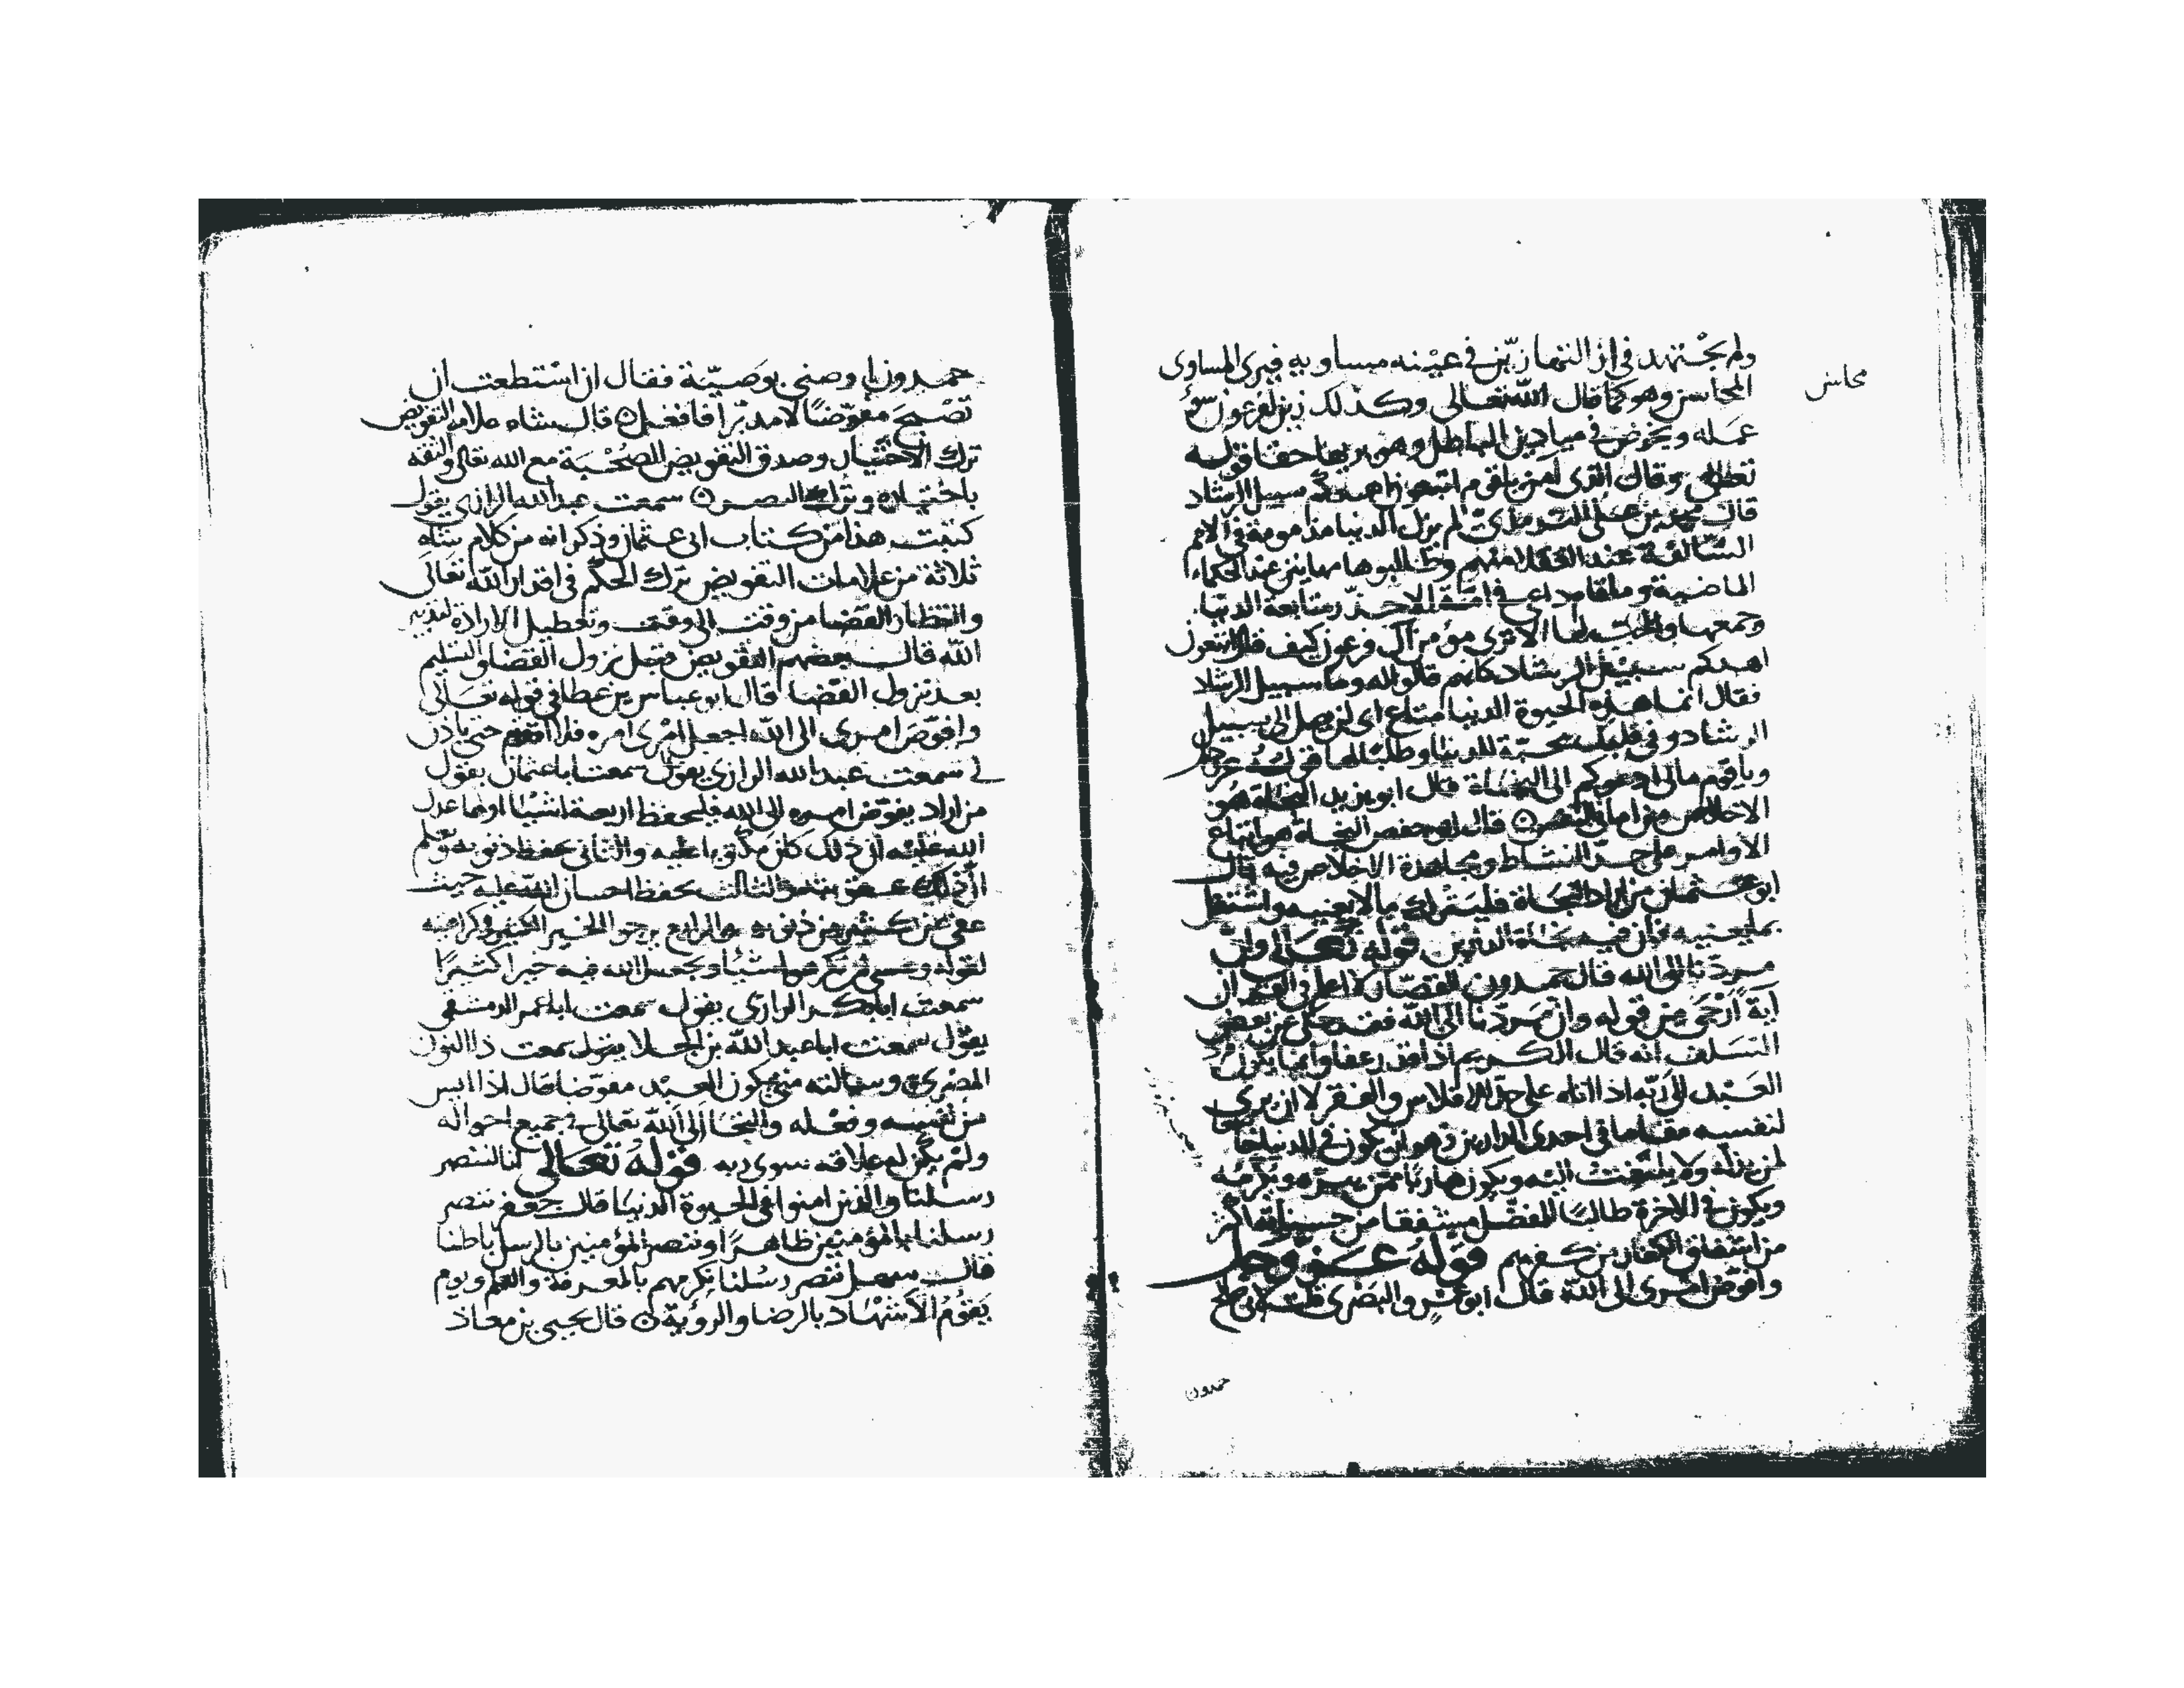 ولم يجتهد في ازالتها زين في عينه مساويه فيرى المساوى
محاسن
المحاسن وهو كما قال الله تعالى وكذلك زين لفرعون سوء
عمله ويخوض في ميادين الباطل وهو يريها حقا قوله
تعالى وقال الذى امن ياقوم اتبعون اهدكم سبيل الرشاد
قال محمد بن على الترمذى لم يزل الدنيا مذمومة في الامم
السالفة عند العقلا منهم وطالبوها مهانين عند الحكماء
الماضية وما قام داعي في امة الا حذر متابعة الدنيا
وجمعها والحب لها الا ترى مؤمن آل فرعون كيف قال اتبعون
اهدكم سبيل الرشاد كانهم قالوا له وما سبيل الرشاد
فقال انما هذه الحيوة الدنيا متاع اى لن يصل الى سبيل
الرشاد وفي قلبه محبة للدنيا وطلب لها قوله عز وجل
وياقوم مالى ادعوكم الى النجاة قال ابو يزيد النجاة هو
الاخلاص من امانى النفس قال ابو حفص النجاة هو اتباع
الاوامر على حد النشاط ومجاهدة الاخلاص فيه قال
ابو عثمان من اراد النجاة فليترك ما لا يعنيه واشتغل
بما يعنيه فان فيه نجاة الدارين قوله تعالى وان
مردنا الى الله قال حمدون القصار لا اعلم في القران
آية ارجى من قوله وان مردنا الى الله فقد حكى عن بعض
السلف انه قال الكريم اذا قدر عفا وانما يكون مرد
العبد الى ربه اذا اتاه على حد الافلاس والفقر لا ان يرى
لنفسه مقاما في احدى الدارين وهو ان يكون في الدنيا خاضعا
لمن يذله ولا يلتفت اليه ويكون هاربا ممن يبره ويكرمه
ويكون في الاخرة طالبا للفضل مشفقا من حسناته اكثر
من اشفاق الكفار من كفرهم قوله عز وجل
وافوض امرى الى الله قال ابو عمرو البصرى قلت لابي صالح
حمدون
حمدون اوصنى بوصية فقال ان استطعت ان
تصبح مفوضا لا مدبرا فافعل قال شاه علامة التفويض
ترك الاختيار وصدق التفويض الصحبة مع الله تعالى والثقه
باختياره وترك التبصر سمعت عبد الله الرازى يقول
كتبت هذا من كتاب ابي عثمان وذكر انه من كلام شاه
ثلاثة من علامات التفويض ترك الحكم في اقدار الله تعالى
وانتظار القضا من وقت الى وقت وتعطيل الارادة لتدبير
الله قال بعضهم التفويض قبل نزول القضا والتسليم
بعد نزول القضا قال ابو عباس بن عطا في قوله تعالى
وافوض امرى الى الله اجعل امرى امره فلا اقوم حتى ياذن
لى سمعت عبد الله الرازى يقول سمعت ابا عثمان يقول
من اراد يفوض امره الى الله فليحفظ اربعة اشيا اولها عدل
الله عليه ان ذلك كان مكتوبا عليه والثانى يحفظ ذنوبه ويعلم
ان ذلك عقوبته والثالث يحفظ احسان الله عليه حيث
عفى عن كثير من ذنوبه والرابع يرجو الخير الكثير وكراميه
لقوله وعسى ان تكرهوا شيئا ويجعل الله فيه خيرا كثيرا
سمعت ابا بكر الرازى يقول سمعت ابا عمر الدمشقى
يقول سمعت ابا عبد الله بن الجلا يقول سمعت ذا النون
المصرى وسالته متى يكون العبد مفوضا قال اذا ايس
من نفسه وفعله والتجا الى الله تعالى في جميع احواله
ولم يكن له علاقه سوى ربه قوله تعالى انا لننصر
رسلنا والذين امنوا في الحيوة الدنيا قال جعفر ننصر
رسلنا بالمؤمنين ظاهرا وننصر المؤمنين بالرسل باطنا
قال سهل ننصر رسلنا نكرمهم بالمعرفة والعلم ويوم
يقوم الاشهاد بالرضا والروية قال يحيى بن معاذ